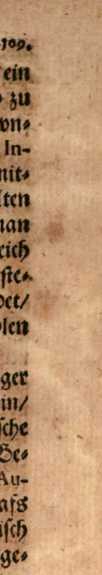 109.
ein
zu
von⸗
In-
mit⸗
lten
man
reich
ste⸗
det/
len
ger
in/
sche
Ge⸗
Au-
afs
isch
ge⸗